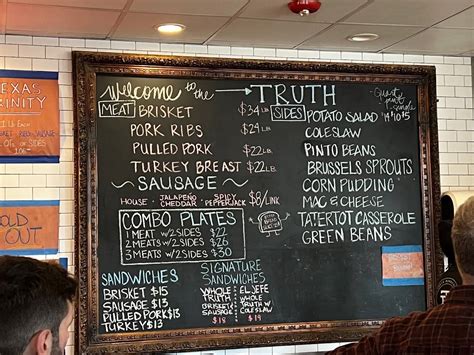 Welcome to the TRUTH
MEAT BRISKET $34 LB
PORK RIBS $29 LB
PULLED PORK $22 LB
TURKEY BREAST $22 LB
SAUSAGE
HOUSE - JALAPEÑO CHEDDAR - SPICY PEPPERJACK $8/LINK
COMBO PLATES
1 MEAT W/2 SIDES $22
2 MEATS W/2 SIDES $26
3 MEATS W/2 SIDES $30
SANDWICHES
BRISKET $15
SAUSAGE $13
PULLED PORK $13
TURKEY $13
SIGNATURE
SANDWICHES
WHOLE
TRUTH
BRISKET
SAUSAGE
$19
EL JEFE
WHOLE
TRUTH W/
COLESLAW
$19
SIDES POTATO SALAD
COLESLAW
PINTO BEANS
BRUSSELS SPROUTS
CORN PUDDING
MAC & CHEESE
TATERTOT CASSEROLE
GREEN BEANS
TEXAS
TRINITY
OLD
OUT